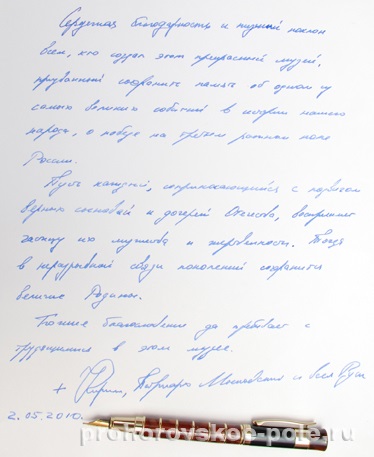 Сердечная благодарность и низкий поклон
всем, кто создал этот прекрасный музей,
призванный сохранить память об одном из
самых великих событий в истории нашего
народа, о победе на третьем ратном поле
России.
Пусть каждый, соприкасающийся с подвигом
верных сыновей и дочерей Отечества, воспримет
частицу их мужества и жертвенности. Тогда
в неразрывной связи поколений сохранится
величие Родины.
Божие благословение да пребывает с
трудящимися в этом музее.
+ Кирилл, Патриарх Московский и всея Руси
2.05.2010.
prohorovskoe-pole.ru